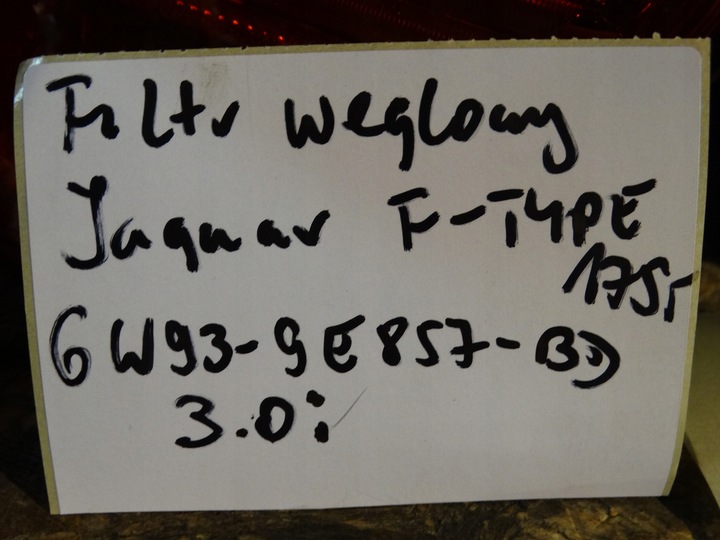 Filtr weglowy
Jaguar F-TYPE
175r
6W93-9E857-BD
3.0i